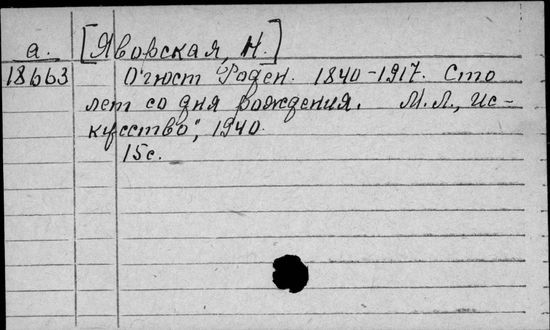 а. [Яворская, Н.]
18663 Огюст Роден. 1840-1917. Сто
лет со дня рождения. М.Л., "Ис-
кусство", 1940.
15с.